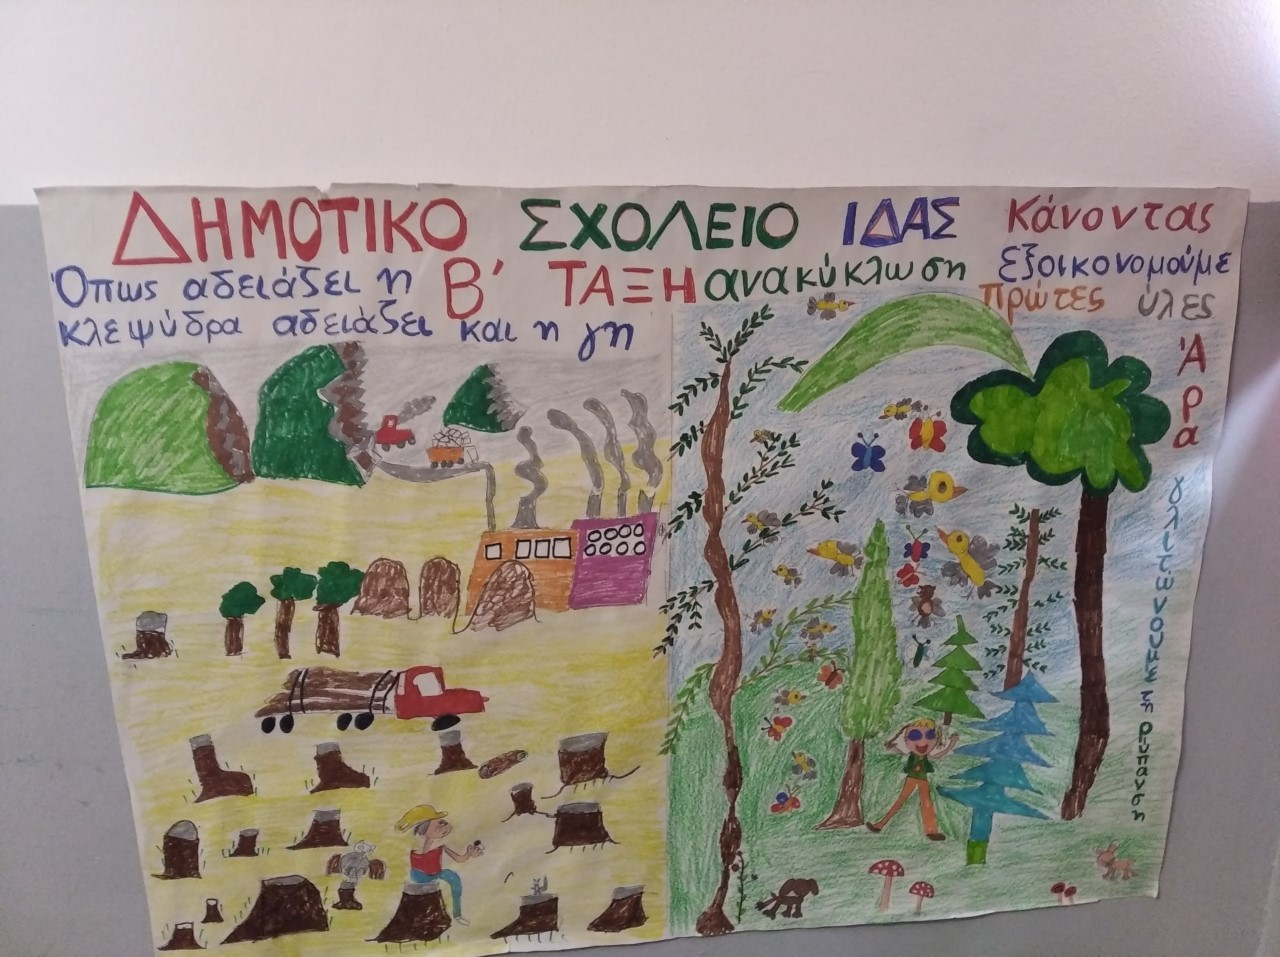 ΔΗΜΟΤΙΚΟ ΣΧΟΛΕΙΟ ΙΔΑΣ
Β' ΤΑΞΗ
Όπως αδειάζει η
κλεψύδρα αδειάζει και η γη
Κάνοντας
ανακύκλωση εξοικονομούμε
πρώτες ύλες
Άρα
γλιτώνουμε τη ρύπανση